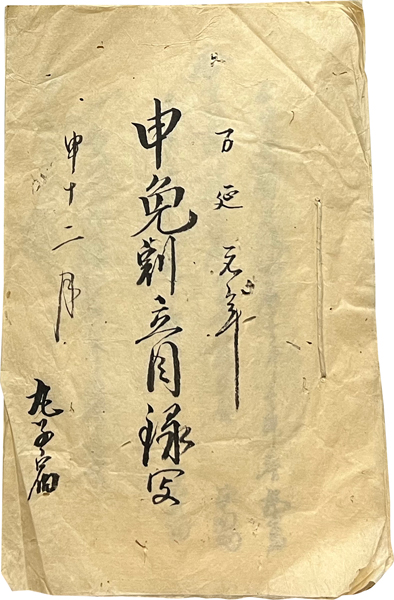 万延元年
申免割立目録写
申十二月
丸子宿